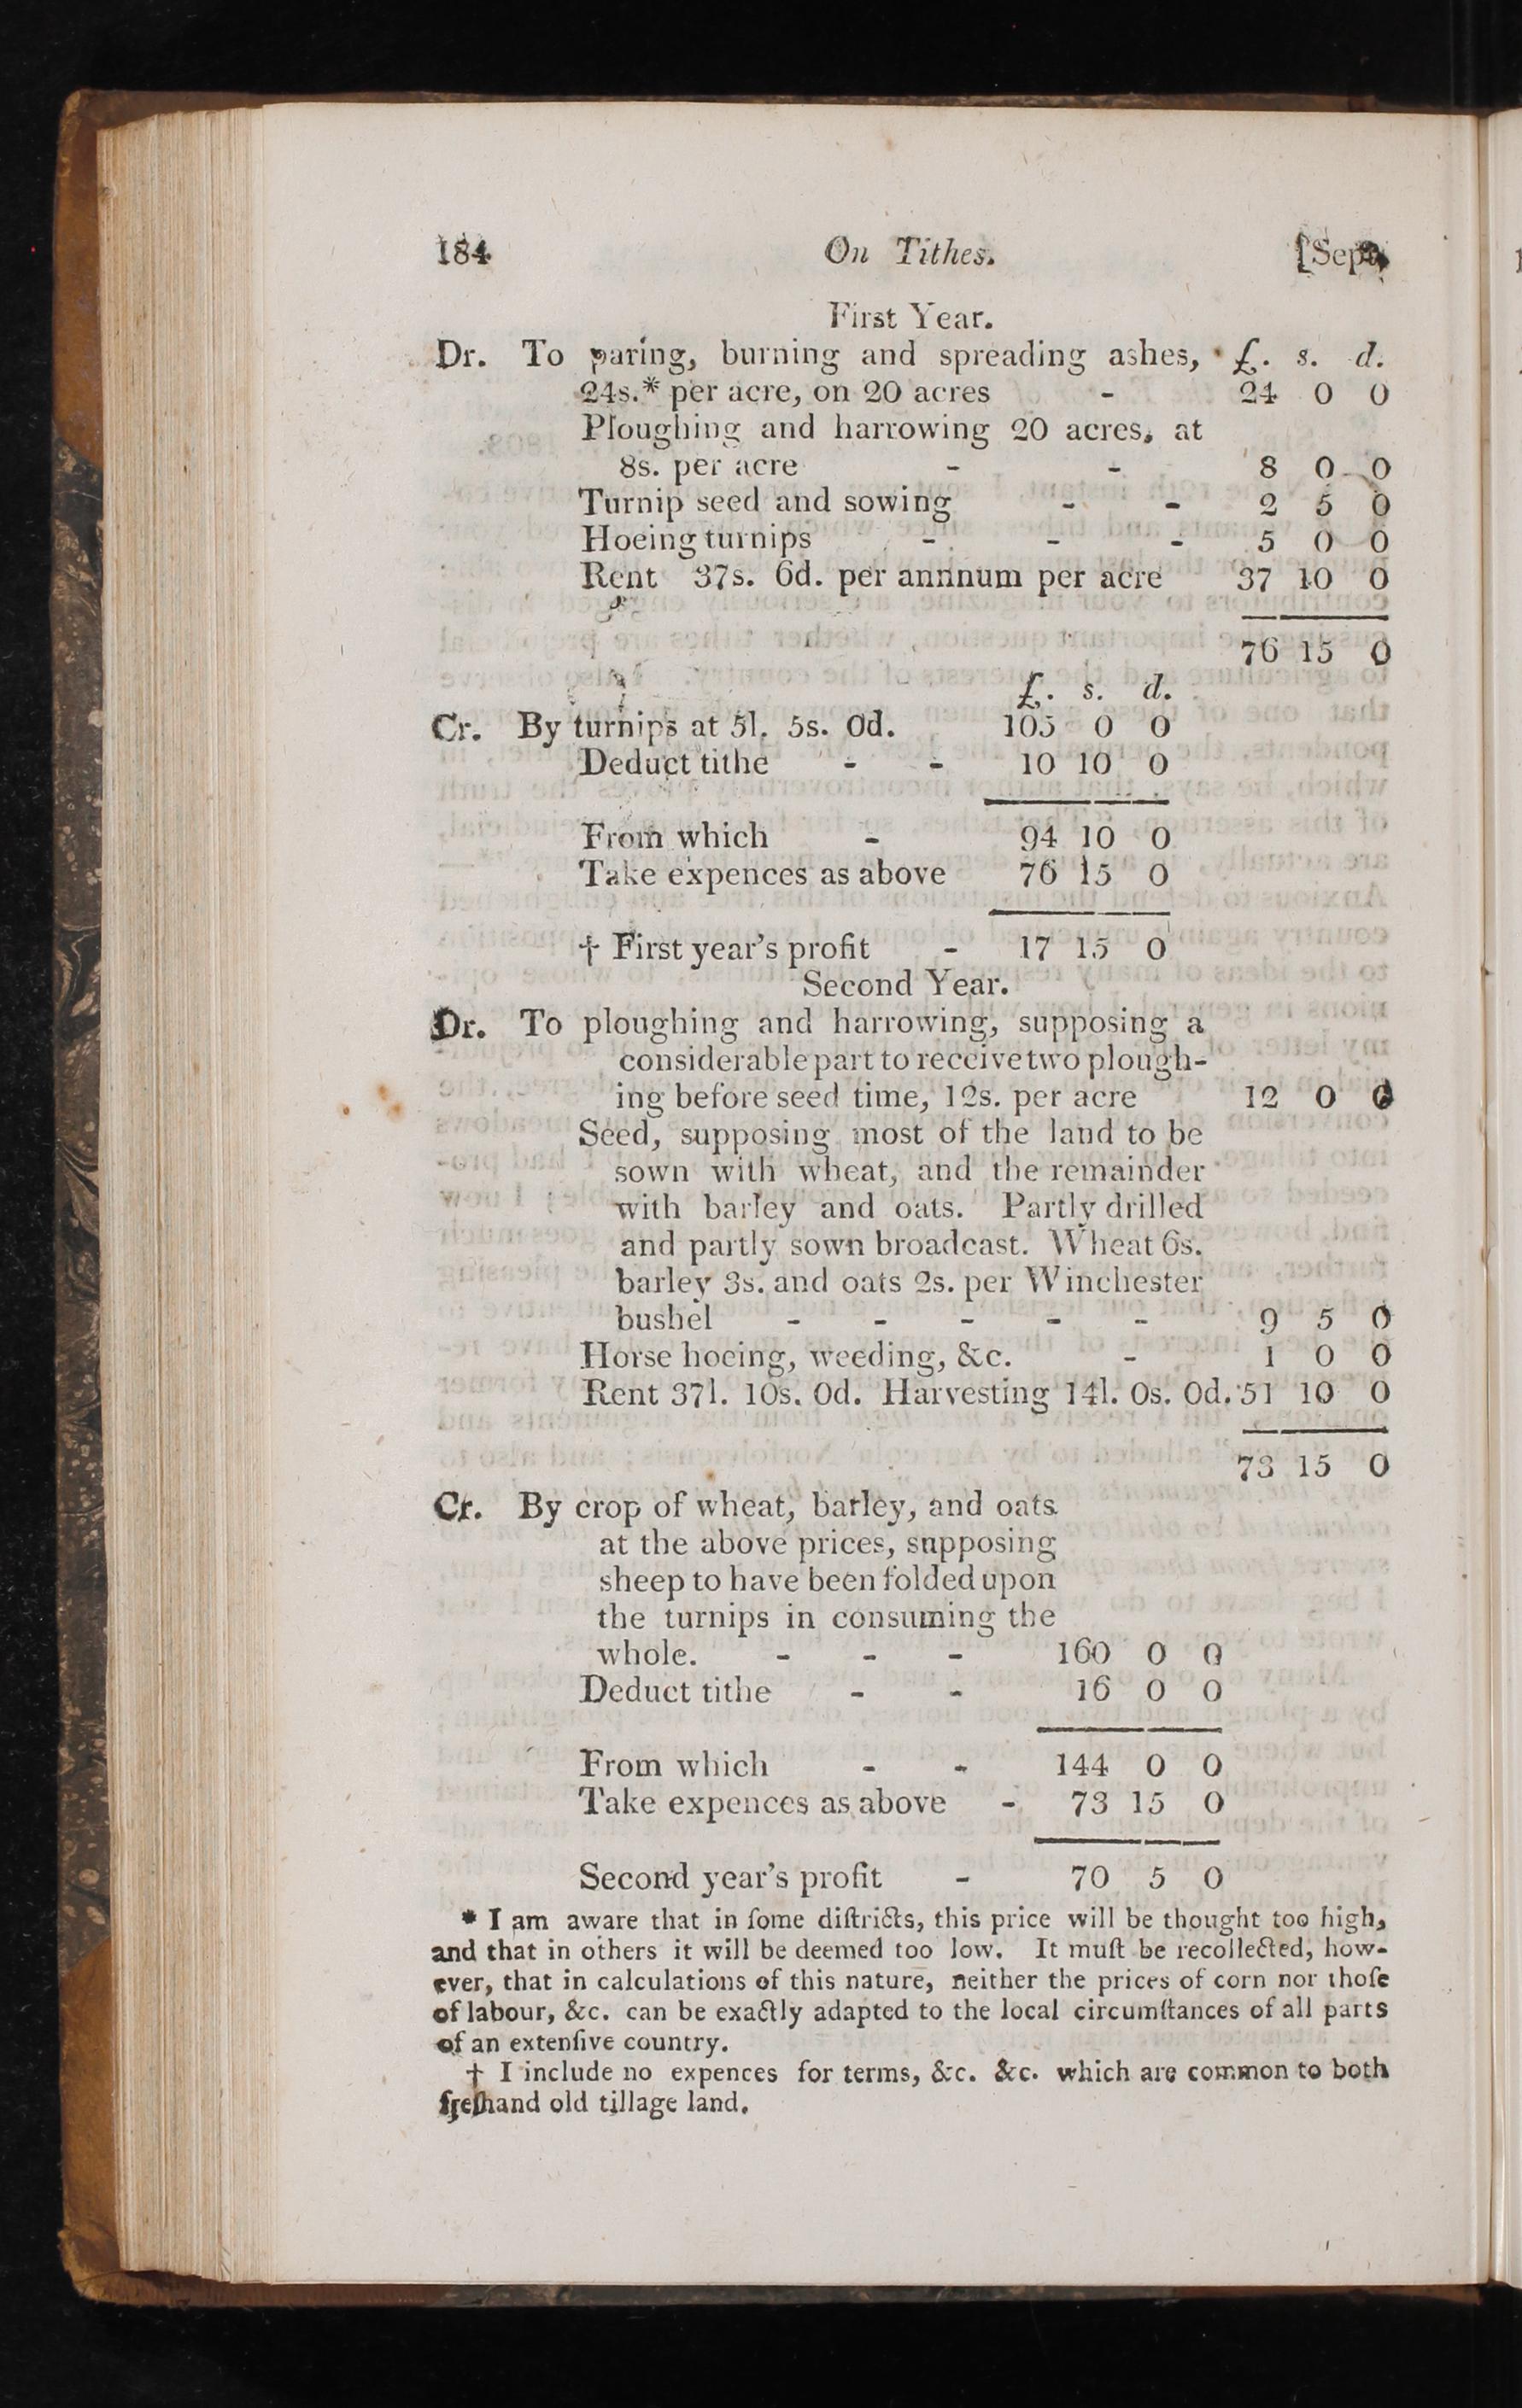 184 On Tithes. [Sept.
First Year.
Dr. To paring, burning and spreading ashes, £. s. d.
24s.* per acre, on 20 acres - 24 0 0
Ploughing and harrowing 20 acres, at
8s. per acre - - 8 0 0
Turnip seed and sowing - - 2 5 0
Hoeing turnips - - - 5 0 0
Rent 37s. 6d. per annnum per acre 37 10 0
76 15 0
£. s. d.
Cr. By turnips at 5l. 5s. 0d. 105 0 0
Deduct tithe - - 10 10 0
From which - 94 10 0
Take expences as above 76 15 0
† First year's profit - 17 15 0
Second Year.
Dr. To ploughing and harrowing, supposing a
considerable part to receive two plough-
ing before seed time, 12s. per acre 12 0 0
Seed, supposing most of the land to be
sown with wheat, and the remainder
with barley and oats. Partly drilled
and partly sown broadcast. Wheat 6s.
barley 3s. and oats 2s. per Winchester
bushel - - - - - 9 5 0
Horse hoeing, weeding, &c. - 1 0 0
Rent 37l. 10s. 0d. Harvesting 14l. 0s. 0d. 51 10 0
73 15 0
Cr. By crop of wheat, barley, and oats
at the above prices, supposing
sheep to have been folded upon
the turnips in consuming the
whole. - - - 160 0 0
Deduct tithe - - 16 0 0
From which - - 144 0 0
Take expences as above - 73 15 0
Second year's profit - 70 5 0
* I am aware that in ſome diſtricts, this price will be thought too high,
and that in others it will be deemed too low. It muſt be recollected, how-
ever, that in calculations of this nature, neither the prices of corn nor thoſe
of labour, &c. can be exactly adapted to the local circumſtances of all parts
of an extenſive country.
† I include no expences for terms, &c. &c. which are common to both
freſhand old tillage land.